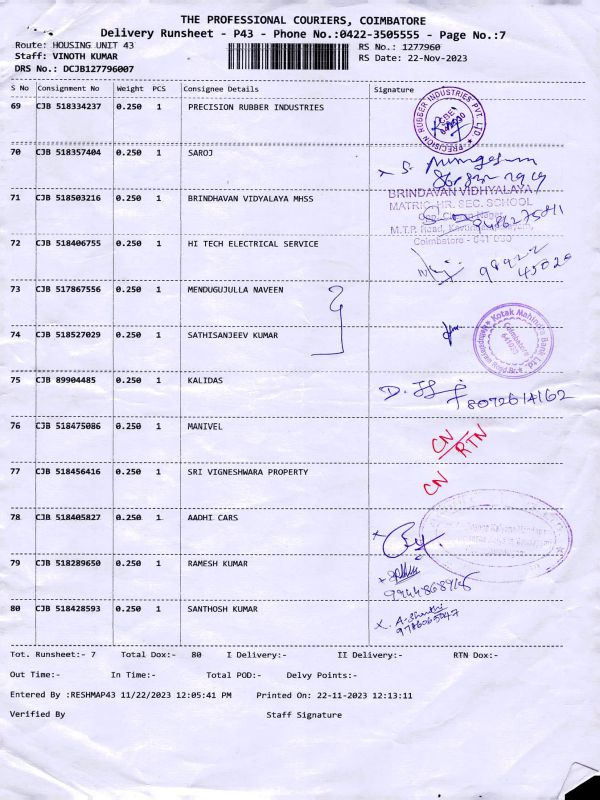 THE PROFESSIONAL COURIERS, COIMBATORE
Delivery Runsheet - P43 - Phone No.:0422-3505555 - Page No.:7
Route: HOUSING UNIT 43 RS No.: 1277960
Staff: VINOTH KUMAR RS Date: 22-Nov-2023
DRS No.: DCJB127796007
S No Consignment No Weight PCS Consignee Details Signature
69 CJB 518334237 0.250 1 PRECISION RUBBER INDUSTRIES
PRECISION RUBBER INDUSTRIES PVT. LTD
70 CJB 518357404 0.250 1 SAROJ
x S. Murugesan
71 CJB 518503216 0.250 1 BRINDHAVAN VIDYALAYA MHSS
BRINDAVAN VIDHYALAYA
MATRIC. HR. SEC. SCHOOL
9486275841
M.T.P. Road,
Coimbatore - 641 030
72 CJB 518406755 0.250 1 HI TECH ELECTRICAL SERVICE
98922
45020
73 CJB 517867556 0.250 1 MENDUGUJULLA NAVEEN
74 CJB 518527029 0.250 1 SATHISANJEEV KUMAR
Kotak Mahindra Bank Ltd.
Coimbatore
75 CJB 89904485 0.250 1 KALIDAS
8072614162
76 CJB 518475086 0.250 1 MANIVEL
CN
RTN
77 CJB 518456416 0.250 1 SRI VIGNESHWARA PROPERTY
CN
78 CJB 518405827 0.250 1 AADHI CARS
x
79 CJB 518289650 0.250 1 RAMESH KUMAR
x
80 CJB 518428593 0.250 1 SANTHOSH KUMAR
x. A. Shanthi
9786065947
Tot. Runsheet:- 7 Total Dox:- 80 I Delivery:- II Delivery:- RTN Dox:-
Out Time:- In Time:- Total POD:- Delvy Points:-
Entered By :RESHMAP43 11/22/2023 12:05:41 PM Printed On: 22-11-2023 12:13:11
Verified By Staff Signature